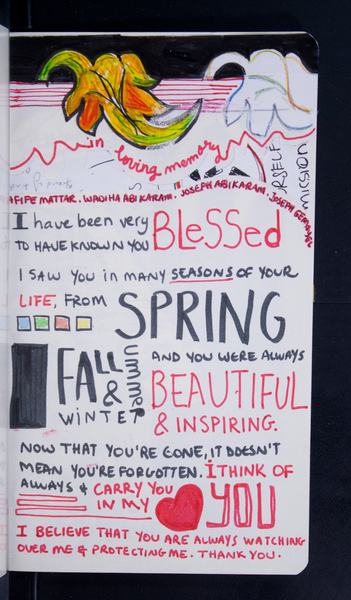 in loving memory
RSELF
MICSION
AFIFE MATTAR. WADIHA ABI KARAM. JOSEPH ABI KARAM. JOSEPH
I have been very BLeSSed
TO HAVE KNOWN YOU
I SAW YOU IN MANY SEASONS OF YOUR
LIFE, FROM SPRING
FALL summer AND YOU WERE ALWAYS
& WiNTER BEAUTIFUL
& INSPIRING.
NOW THAT YOU'RE GONE, IT DOESN'T
MEAN YOU'RE FORGOTTEN. I THINK OF
ALWAYS & CARRY YOU YOU
IN MY
I BELIEVE THAT YOU ARE ALWAYS WATCHING
OVER ME & PROTECTING ME. THANK YOU.